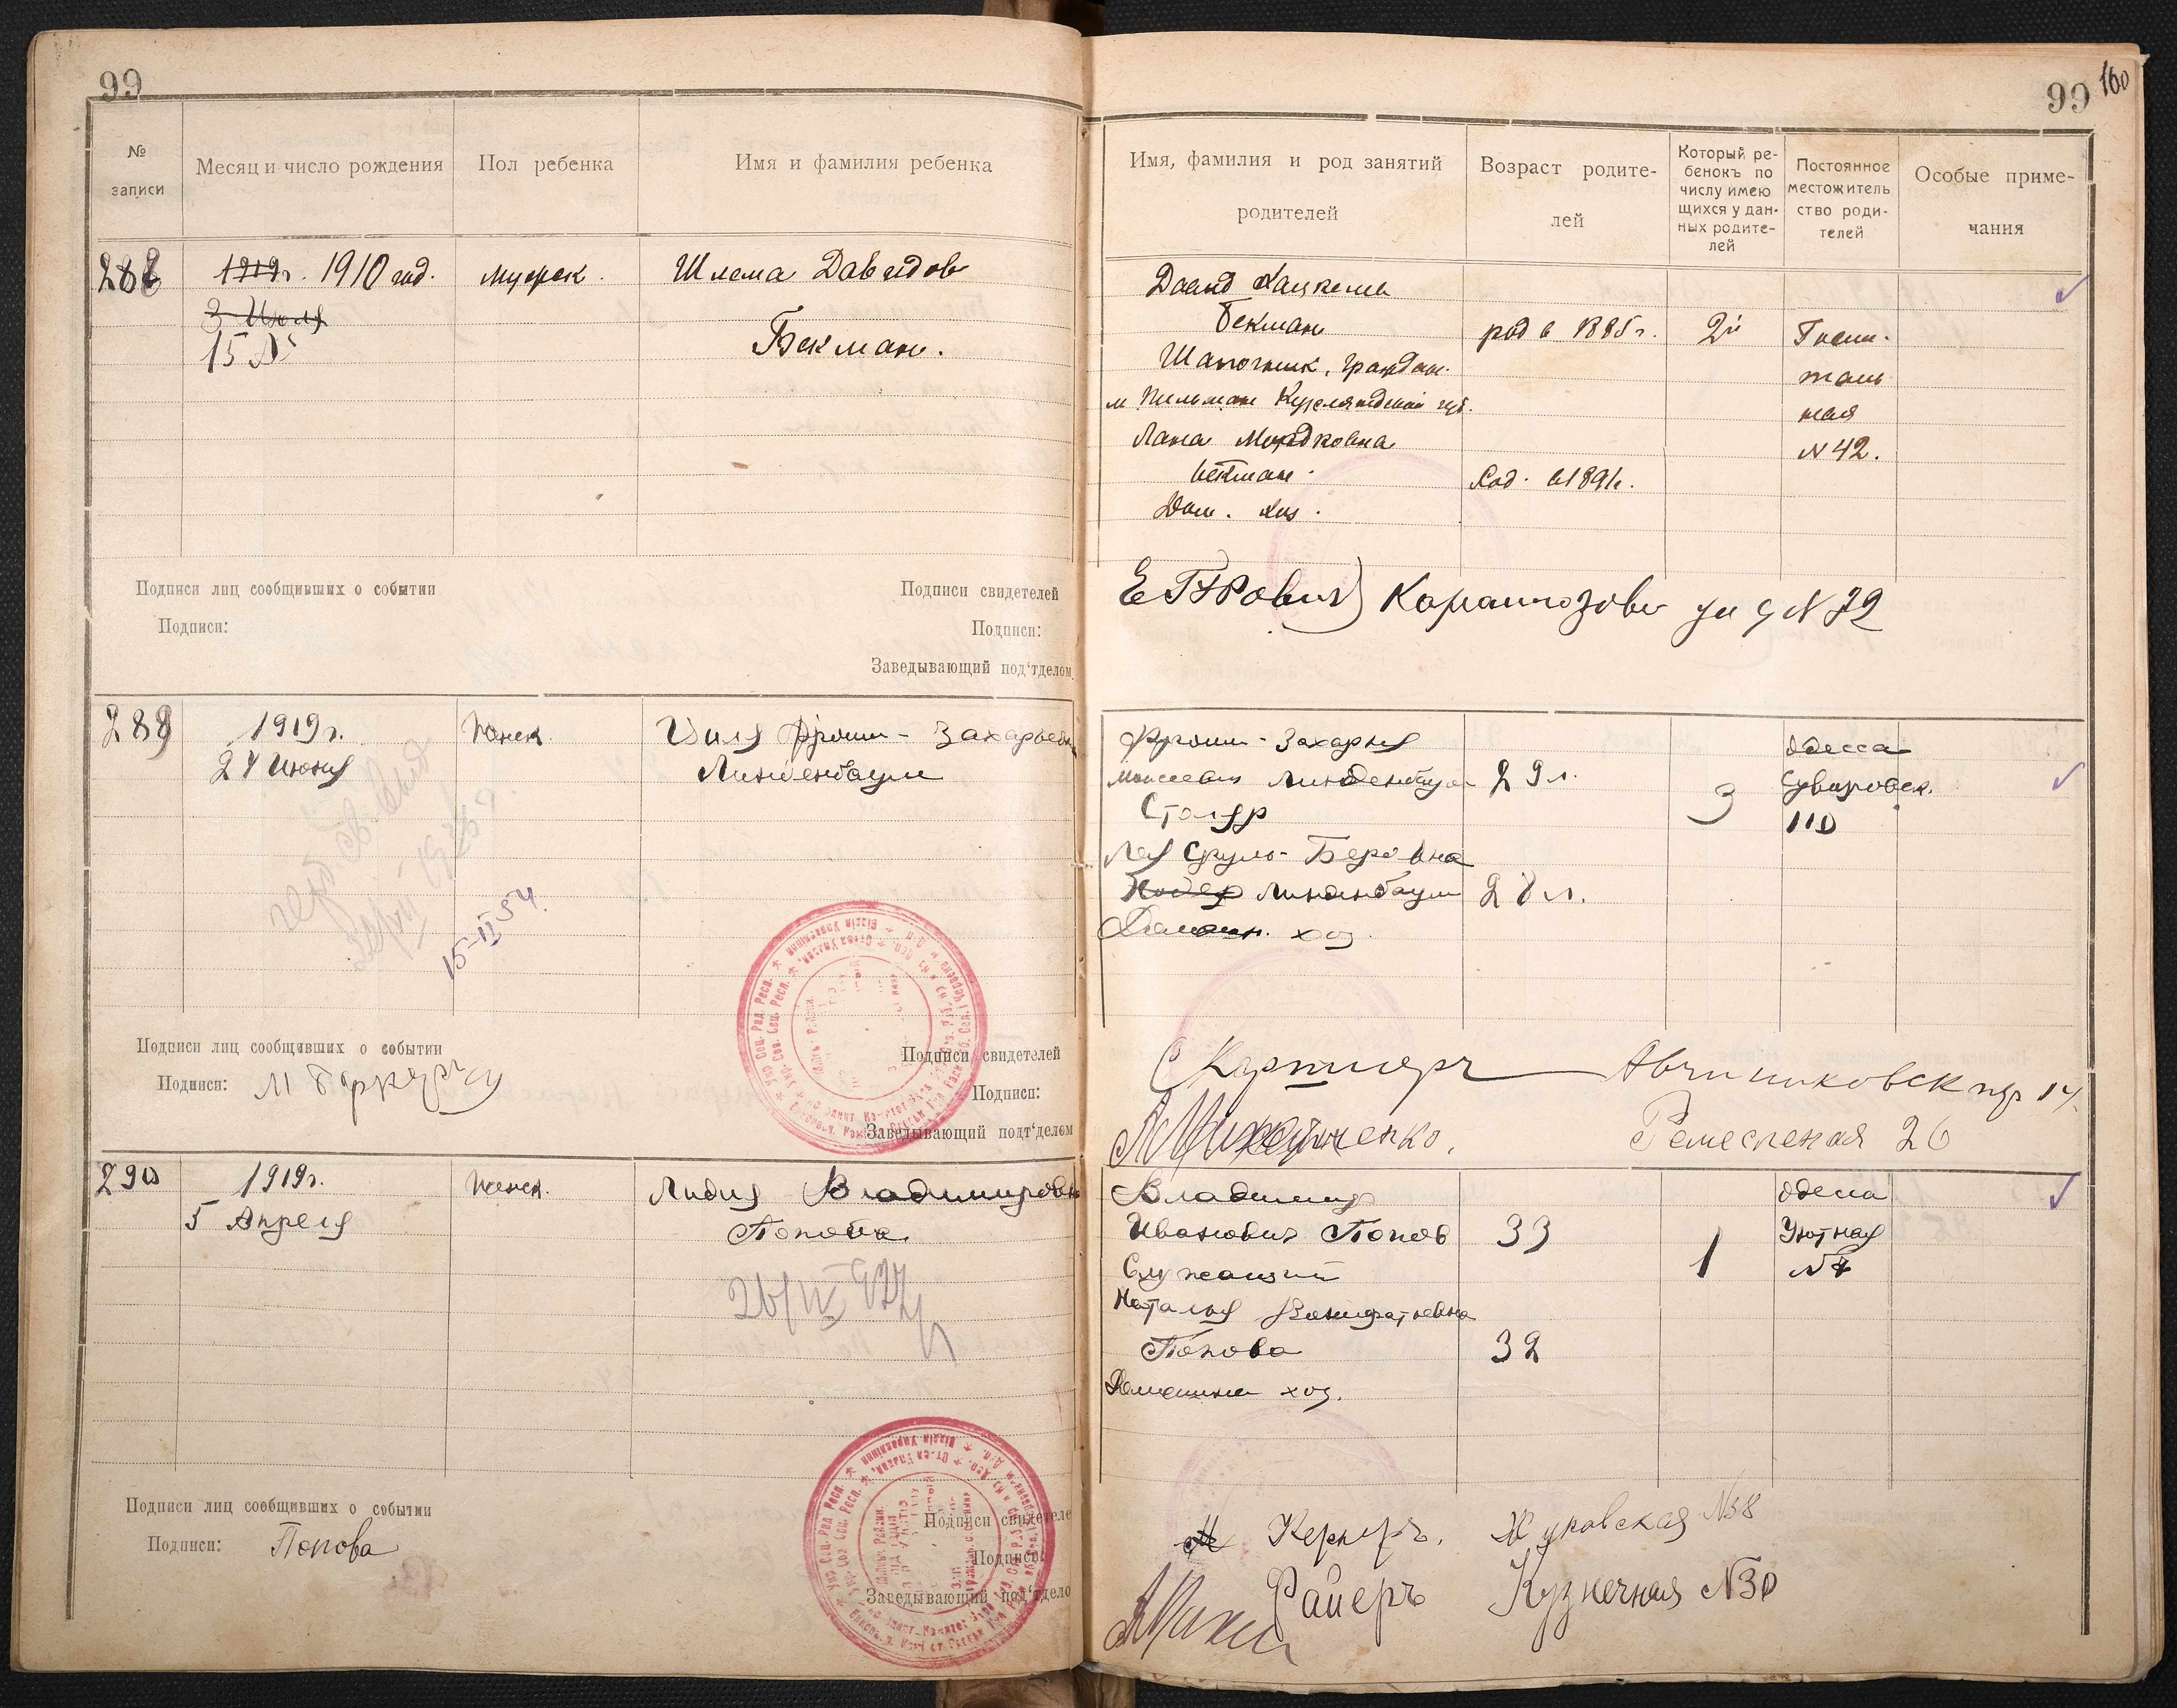 99
№ записи
Месяц и число рождения
Пол ребенка
Имя и фамилия ребенка
288
1919г. 1910 год.
3 Июля
15
мужеск.
Шлема Давидов
Бекман.
Подписи лиц сообщивших о событии
Подписи:
Подписи свидетелей
Подписи:
Заведывающий под‘тделом
289
1919г.
27 Июня
женск.
Фроим-Захарьевна
Линденбаум
15-II 54.
Подписи лиц сообщивших о событии
Подписи:
Подписи свидетелей
Подписи:
Заведывающий подт‘делом
290
1919г.
5 Апреля
женск.
Лидия Владимировна
Попова
26/IV 927
Подписи лиц сообщивших о событии
Подписи: Попова
Подписи свидетеле
Подписи:
Заведывающий под‘тдело
99 100
Имя, фамилия и род занятий
родителей
Возраст родите-
лей
Который ре-
бенокъ по
числу имею
щихся у дан-
ных родите-
лей
Постоянное
местожитель
ство роди-
телей
Особые приме-
чания
Давид Хацкелев
Бекман
Шапочник, граждан.
м Пильтан Курляндской губ.
Мордковна
Бекман.
Дом. хоз.
род в 1885 г.
Род. в 1891г.
2й
Госпи-
таль
ная
N 42.
N 72
Фроим-Захарья
Моисеевич Линденбаум
Столяр
Лея Сруль-Беровна
Линденбаум
Домашн. хоз.
29 л.
28 л.
3
Одесса
Суворовск.
110
Авчинниковск пер 14.
Ремесленая 26
Владимир
Иванович Попов
Служащий
Наталья Вонифатьевна
Попова
Домашнее хоз.
33
32
1
Одесса
Уютная
Жуковская №38
Файеръ Кузнечная №30